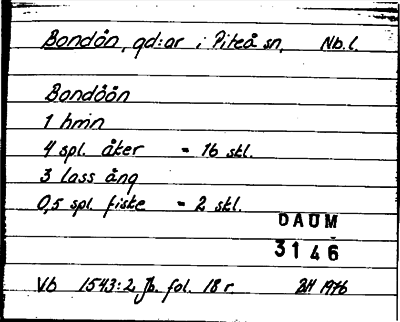 Bondön, gd:ar i Piteå sn, Nb.l.
Bondöön
1 hmn
4 spl. åker = 16 skl.
3 lass äng
0,5 spl. fiske = 2 skl.
DAUM
3146
Vb 1543:2 Jb. fol. 18 r BH 1976